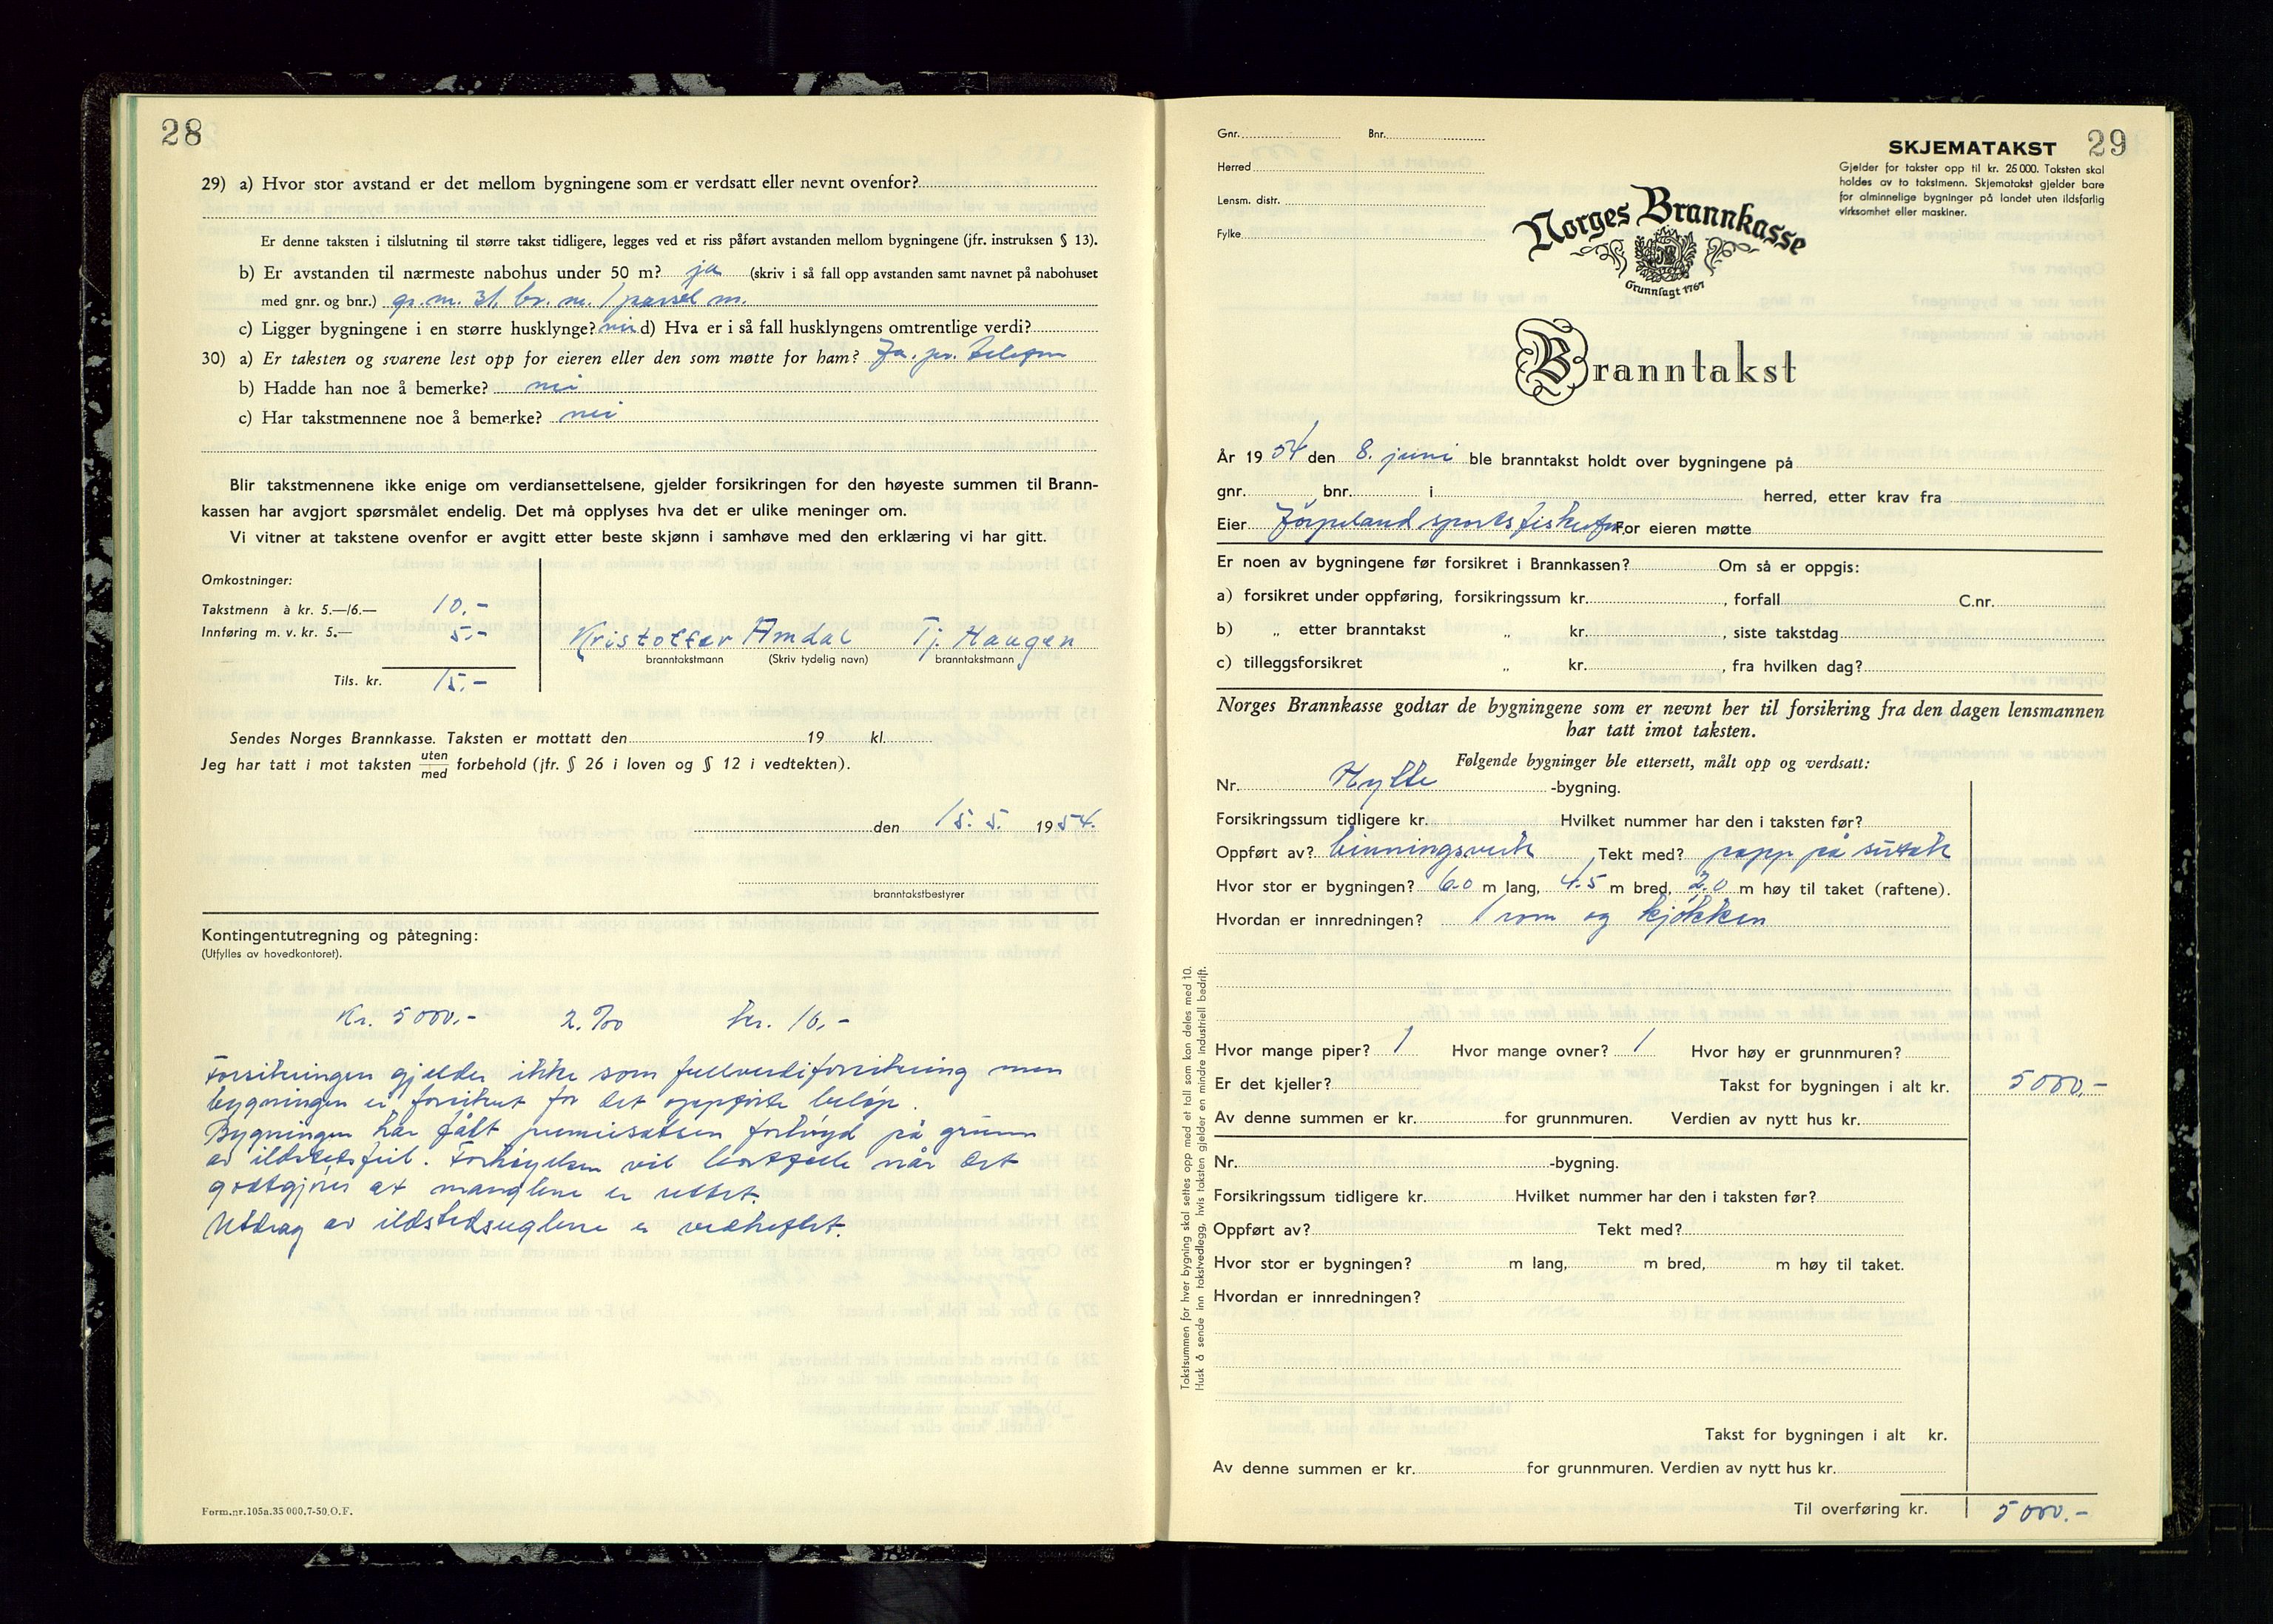 28
29) a) Hvor stor avstand er det mellom bygningene som er verdsatt eller nevnt ovenfor?
Er denne taksten i tilslutning til større takst tidligere, legges ved et riss påført avstanden mellom bygningene (jfr. instruksen § 13).
b) Er avstanden til nærmeste nabohus under 50 m? ja (skriv i så fall opp avstanden samt navnet på nabohuset
med gnr. og bnr.) gr. nr. 31, br. nr. 1 parsel nr.
c) Ligger bygningene i en større husklynge? nei d) Hva er i så fall husklyngens omtrentlige verdi?
30) a) Er taksten og svarene lest opp for eieren eller den som møtte for ham? Ja. pr. telefon
b) Hadde han noe å bemerke? nei
c) Har takstmennene noe å bemerke? nei
Blir takstmennene ikke enige om verdiansettelsene, gjelder forsikringen for den høyeste summen til Brann-
kassen har avgjort spørsmålet endelig. Det må opplyses hva det er ulike meninger om.
Vi vitner at takstene ovenfor er avgitt etter beste skjønn i samhøve med den erklæring vi har gitt.
Omkostninger:
Takstmenn à kr. 5.—/6.— 10.-
Innføring m. v. kr. 5.— 5.-
Kristoffer Amdal Tj. Haugen
branntakstmann (Skriv tydelig navn) branntakstmann
Tils. kr. 15.-
Sendes Norges Brannkasse. Taksten er mottatt den 19 kl.
Jeg har tatt i mot taksten uten/med forbehold (jfr. § 26 i loven og § 12 i vedtekten).
den 15. 5. 1954.
branntakstbestyrer
Kontingentutregning og påtegning:
(Utfylles av hovedkontoret).
Kr. 5000.- 2.‰ kr. 10,-
Forsikringen gjelder ikke som fullverdiforsikring men
bygningen er forsikret for det oppførte beløp.
Bygningen har fått premiesatsen forhøyd på grunn
av ildstedsfeil. Forhøyelsen vil bortfalle når det
godtgjøres at manglene er rettet.
Utdrag av ildstedsreglene er vedheftet.
Form.nr.105a.35 000.7-50.O.F.
29
Gnr. Bnr.
Herred
Lensm. distr.
Fylke
SKJEMATAKST
Gjelder for takster opp til kr. 25000. Taksten skal
holdes av to takstmenn. Skjematakst gjelder bare
for alminnelige bygninger på landet uten ildsfarlig
virksomhet eller maskiner.
Norges Brannkasse
Grunnlagt 1767
Branntakst
År 1954 den 8. juni ble branntakst holdt over bygningene på
gnr. bnr. i herred, etter krav fra
Eier Jørpeland sportsfiskefor. For eieren møtte
Er noen av bygningene før forsikret i Brannkassen? Om så er oppgis:
a) forsikret under oppføring, forsikringssum kr. , forfall C.nr.
b) „ etter branntakst „ kr. , siste takstdag
c) tilleggsforsikret „ kr. , fra hvilken dag?
Norges Brannkasse godtar de bygningene som er nevnt her til forsikring fra den dagen lensmannen
har tatt imot taksten.
Følgende bygninger ble ettersett, målt opp og verdsatt:
Nr. Hytte -bygning.
Forsikringssum tidligere kr. Hvilket nummer har den i taksten før?
Oppført av? binningsverk Tekt med? papp på sutak
Hvor stor er bygningen? 6.0 m lang, 4.5 m bred, 2.0 m høy til taket (raftene).
Hvordan er innredningen? 1 rom og kjøkken
Hvor mange piper? 1 Hvor mange ovner? 1 Hvor høy er grunnmuren?
Er det kjeller? Takst for bygningen i alt kr. 5000,-
Av denne summen er kr. for grunnmuren. Verdien av nytt hus kr.
Nr. -bygning.
Forsikringssum tidligere kr. Hvilket nummer har den i taksten før?
Oppført av? Tekt med?
Hvor stor er bygningen? m lang, m bred, m høy til taket.
Hvordan er innredningen?
Takst for bygningen i alt kr.
Av denne summen er kr. for grunnmuren. Verdien av nytt hus kr.
Til overføring kr. 5000.-
Takstsummen for hver bygning skal settes opp med et tall som kan deles med 10.
Husk å sende inn takstvedlegg, hvis taksten gjelder en mindre industriell bedrift.